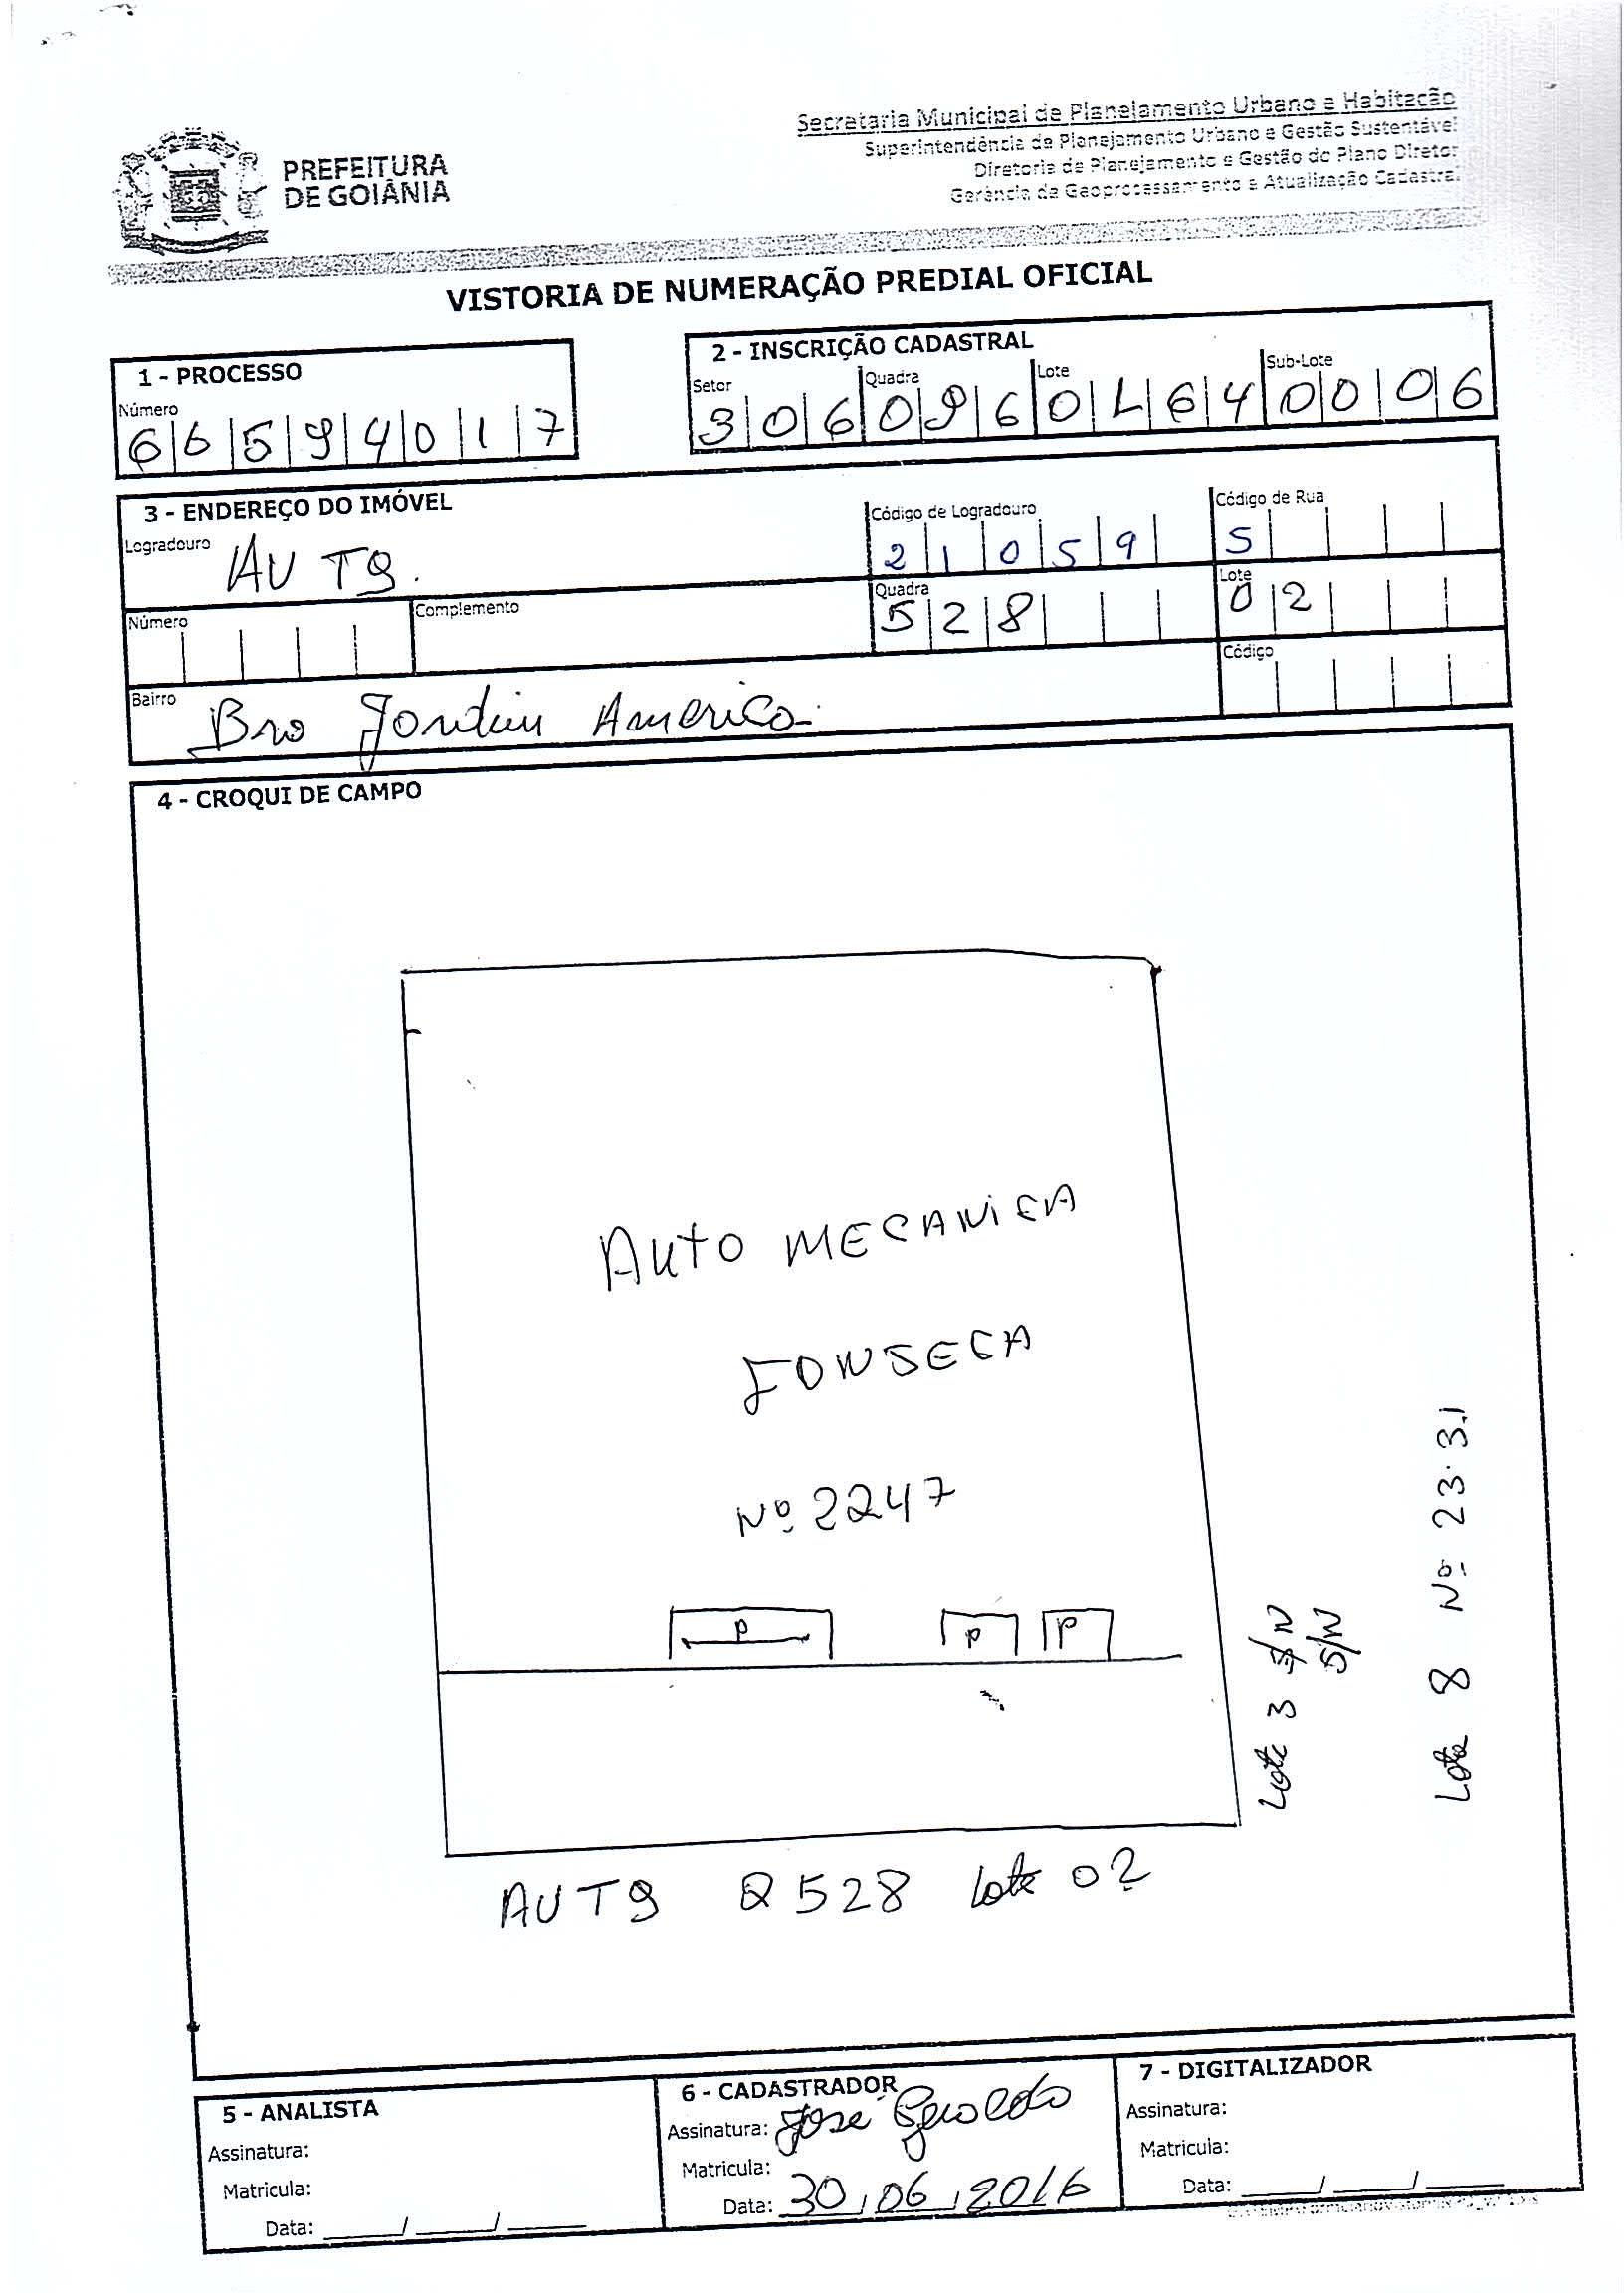 PREFEITURA
DE GOIÂNIA
Secretaria Municipal de Planejamento Urbano e Habitação
Superintendência de Planejamento Urbano e Gestão Sustentável
Diretoria de Planejamento e Gestão do Plano Diretor
Gerência de Geoprocessamento e Atualização Cadastral
VISTORIA DE NUMERAÇÃO PREDIAL OFICIAL
1 - PROCESSO
Número
66594017
2 - INSCRIÇÃO CADASTRAL
Setor Quadra Lote Sub-Lote
306 096 0464 0006
3 - ENDEREÇO DO IMÓVEL
Logradouro AV T9.
Código de Logradouro 21059
Código de Rua 5
Número
Complemento
Quadra 528
Lote 02
Bairro Bro Jardim America
Código
4 - CROQUI DE CAMPO
AUTO MECANICA
FONSECA
Nº 2247
P P P
Lote 3 S/N
S/N
Lote 8 Nº 23.31
AV T9 Q 528 Lote 02
5 - ANALISTA
Assinatura:
Matricula:
Data: ____/____/____
6 - CADASTRADOR
Assinatura: José Geraldo
Matricula:
Data: 30/06/2016
7 - DIGITALIZADOR
Assinatura:
Matricula:
Data: ____/____/____